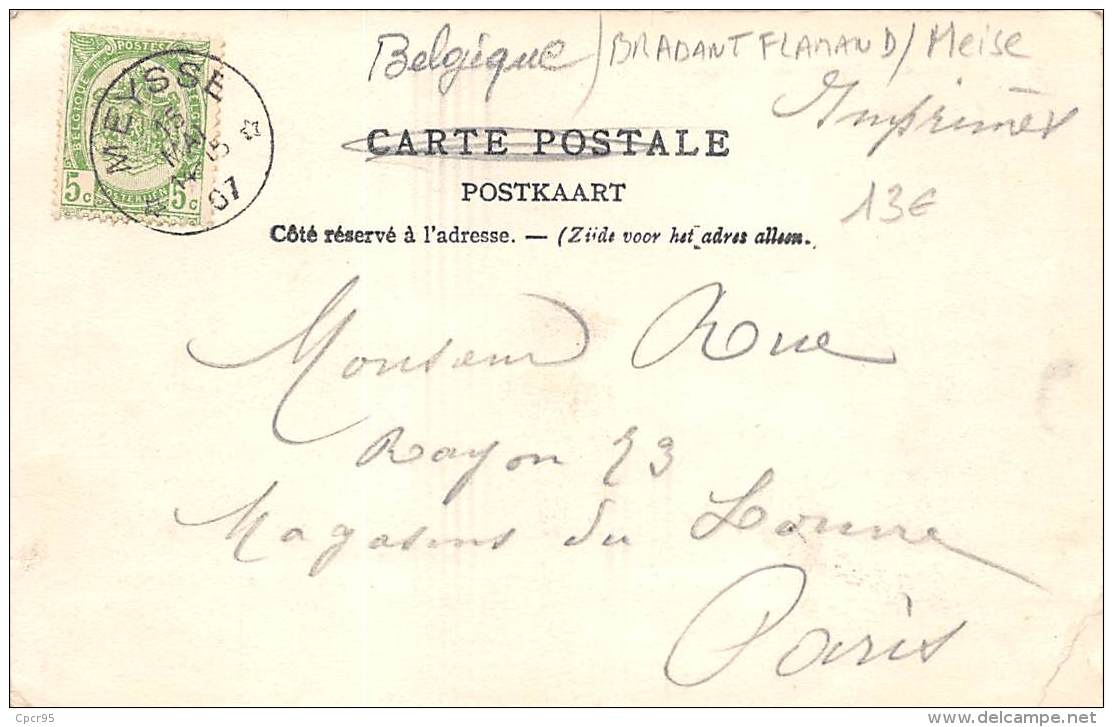 Belgique / BRABANT FLAMAND / Meise
Imprimés
POSTES
BELGIQUE
5c 5c
MEYSSE
15
07
CARTE POSTALE
POSTKAART
13€
Côté réservé à l'adresse. — (Zijde voor het adres alleen.
Monsieur Rue
Rayon 23
Magasins du Louvre
Paris
Cpcr95
www.delcampe.net